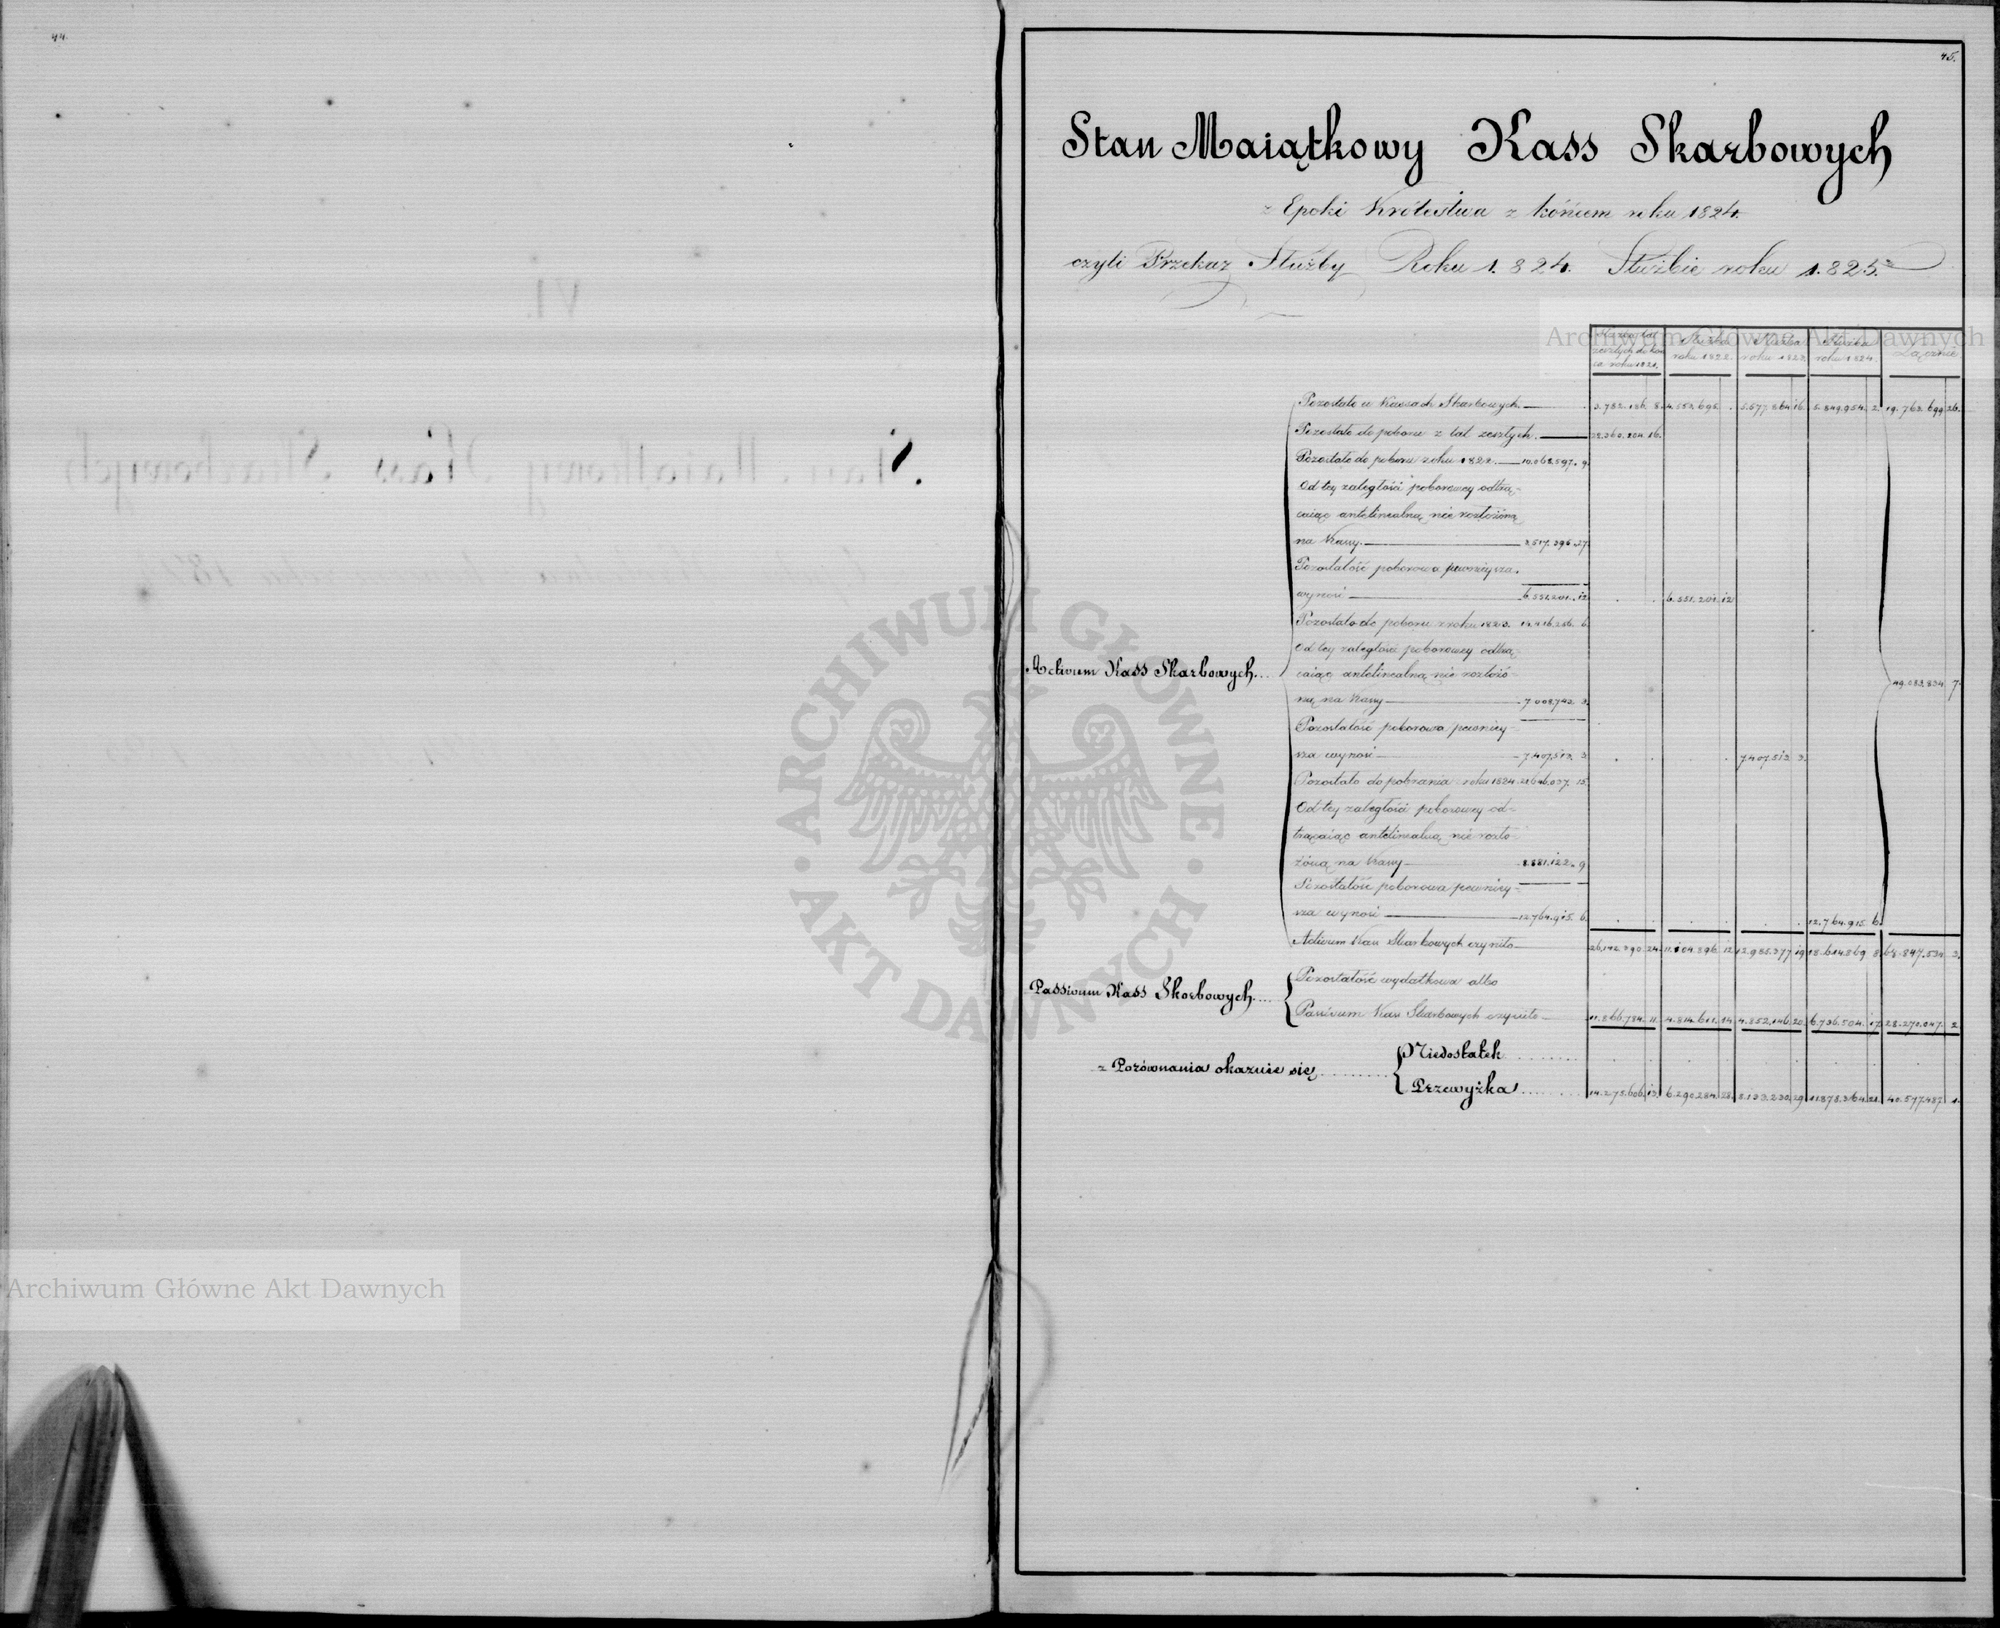 44.
45.
Stan Maiątkowy Kass Skarbowych
z Epoki Królestwa z końcem roku 1824.
czyli Przekaz Służby Roku 1.824. Służbie roku 1.825.
Służba
roku 1822.
Służba
roku 1823.
Służba
roku 1824.
Łącznie
Pozostało w Kassach Skarbowych 3.782.186. 8. 4.553.695. 5.577.864 16. 5.849.954. 2. 19.763.699 26.
Pozostało do poboru z lat zeszłych. 22.360.204.16.
Pozostało do poboru roku 1822. 10.068.597. 9.
Od tey zaległości poborowey odtrą-
caiąc antelinealną nie rozłożoną
na Krawy 3.517.395.27.
Pozostałość poborowa pewnieysza.
wynosi 6.551.201.12. 6.551.201.12
Pozostało do poboru z roku 1823. 14.416.256. 6.
Od tey zaległości poborowey odtrą-
caiąc antelinealną nie rozłożo-
Activum Kass Skarbowych....
49.083.834 7.
ną na Krawy 7.008.742. 3.
Pozostałość poborowa pewniey-
sza wynosi 7.407.513. 3. 7.407.513. 3.
Pozostało do pobrania roku 1824. 21.646.037. 15.
Od tey zaległości poborowey od-
trącaiąc antelinealną nie rozło-
żoną na Krawy 8.881.122. 9.
Pozostałość poborowa pewniey-
sza wynosi 12.764.915. 6. 12.764.915 6.
Activum Kass Skarbowych czyniło 26.142.390 24. 11.104.896 12. 12.985.377 19. 18.614.869 8. 68.847.534 3.
Pozostałość wydatkowa albo
Passivum Kass Skarbowych....
Passivum Kass Skarbowych czyniło 11.866.784. 11. 4.814.611. 14. 4.852.146. 20. 6.736.504. 17. 28.270.047. 2.
Niedostatek
z Porównania okazuie się
Przewyżka 14.275.606. 13. 6.290.284. 28. 8.133.230. 29. 11.878.364. 21. 40.577.487. 1.
Archiwum Główne Akt Dawnych
ARCHIWUM GŁÓWNE AKT DAWNYCH
Archiwum Główne Akt Dawnych